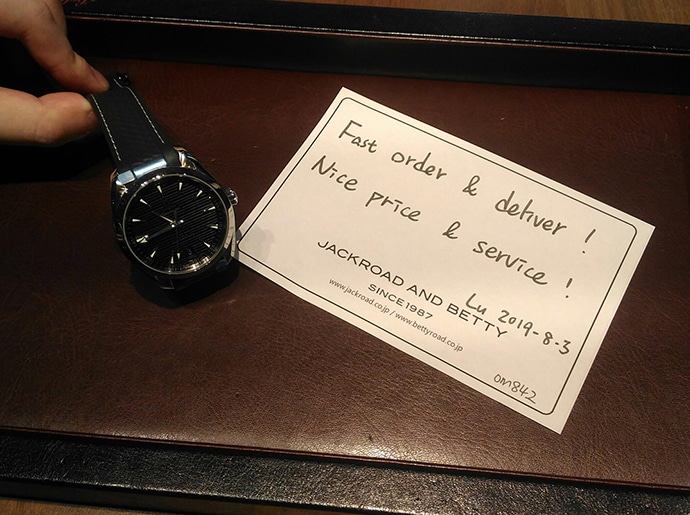 Fast order & deliver!
Nice price & service!
JACKROAD AND BETTY
SINCE1987
www.jackroad.co.jp / www.bettyroad.co.jp
Lu 2019-8-3
om842